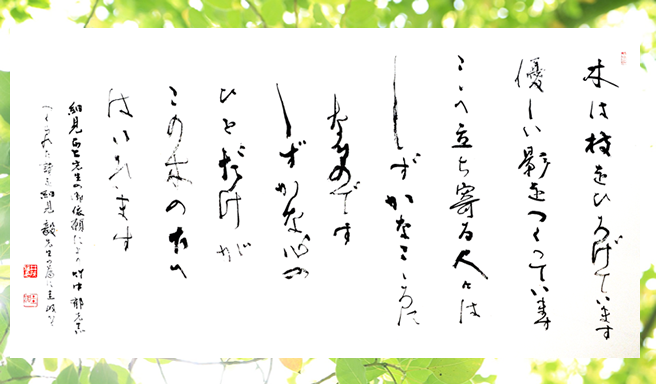 木は枝をひろげています
優しい影をつくっています
ここへ立ち寄る人々は
しずかなこころに
なるのです
しずかな心の
ひとだけが
この木の
はいれます
細見 先生の御依頼により 竹中郁先生
つくられた詩を細見 毅先生の為に